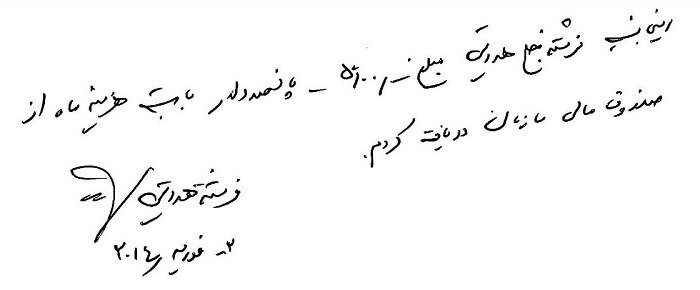 اینجانب فرشته خلج هدایتی مبلغ ۵۰۰/- پانصد دلار بابت هزینه ماه از
صندوق مالی سازمان دریافت کردم.
فرشته هدایتی
۲ـ فوریه ۲۰۱۴